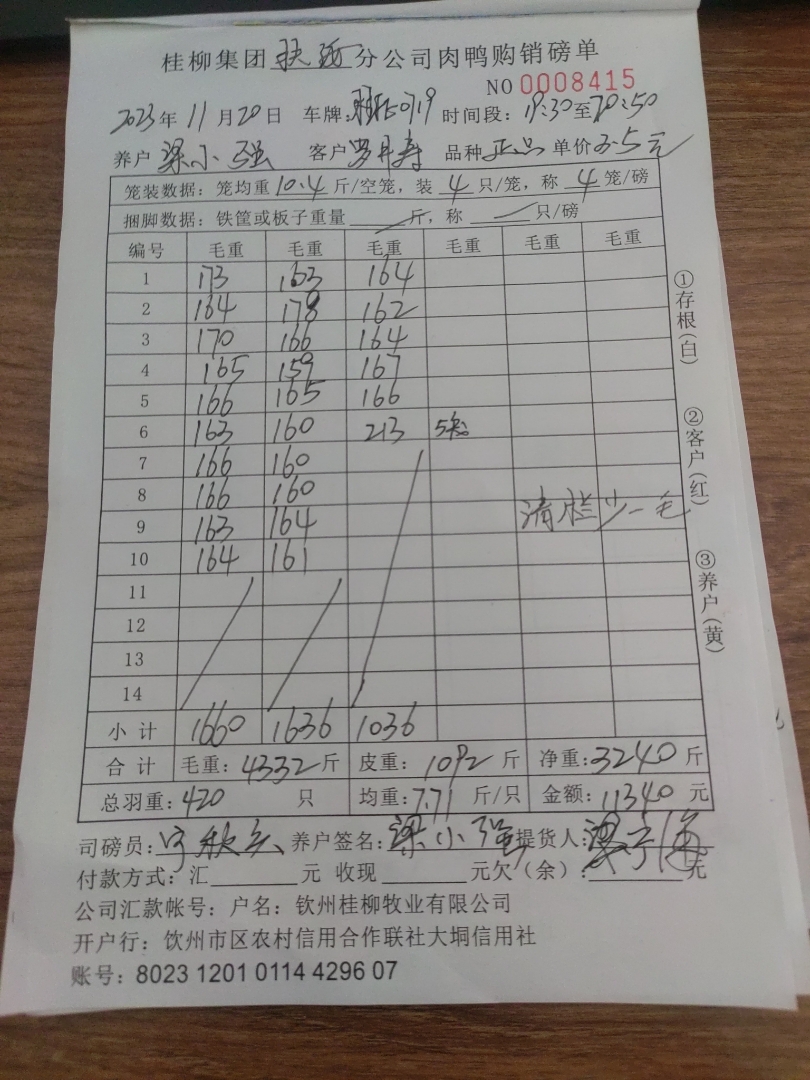 桂柳集团分公司肉鸭购销磅单
NO 0008415
2023年 11月20日 车牌:0719 时间段:19:30至20:50
养户 梁小强 客户 罗寿 品种 正品 单价 3.5元
笼装数据:笼均重 10.4 斤/空笼,装 4 只/笼,称 4 笼/磅
捆脚数据:铁筐或板子重量 斤,称 只/磅
编号 毛重 毛重 毛重 毛重 毛重 毛重
1 173 163 164
2 164 178 162
3 170 166 164
4 165 159 167
5 166 165 166
6 163 160 213 5笼
7 166 160
8 166 160
9 163 164 清栏少一毛
10 164 161
11
12
13
14
小计 1660 1636 1036
合计 毛重:4332斤 皮重:1092斤 净重:3240斤
总羽重:420 只 均重:7.71 斤/只 金额:11340 元
司磅员: 养户签名:梁小强 提货人:
付款方式:汇 元 收现 元欠(余): 元
公司汇款帐号:户名:钦州桂柳牧业有限公司
开户行:饮州市区农村信用合作联社大垌信用社
账号:8023 1201 0114 4296 07
①存根(白)
②客户(红)
③养户(黄)